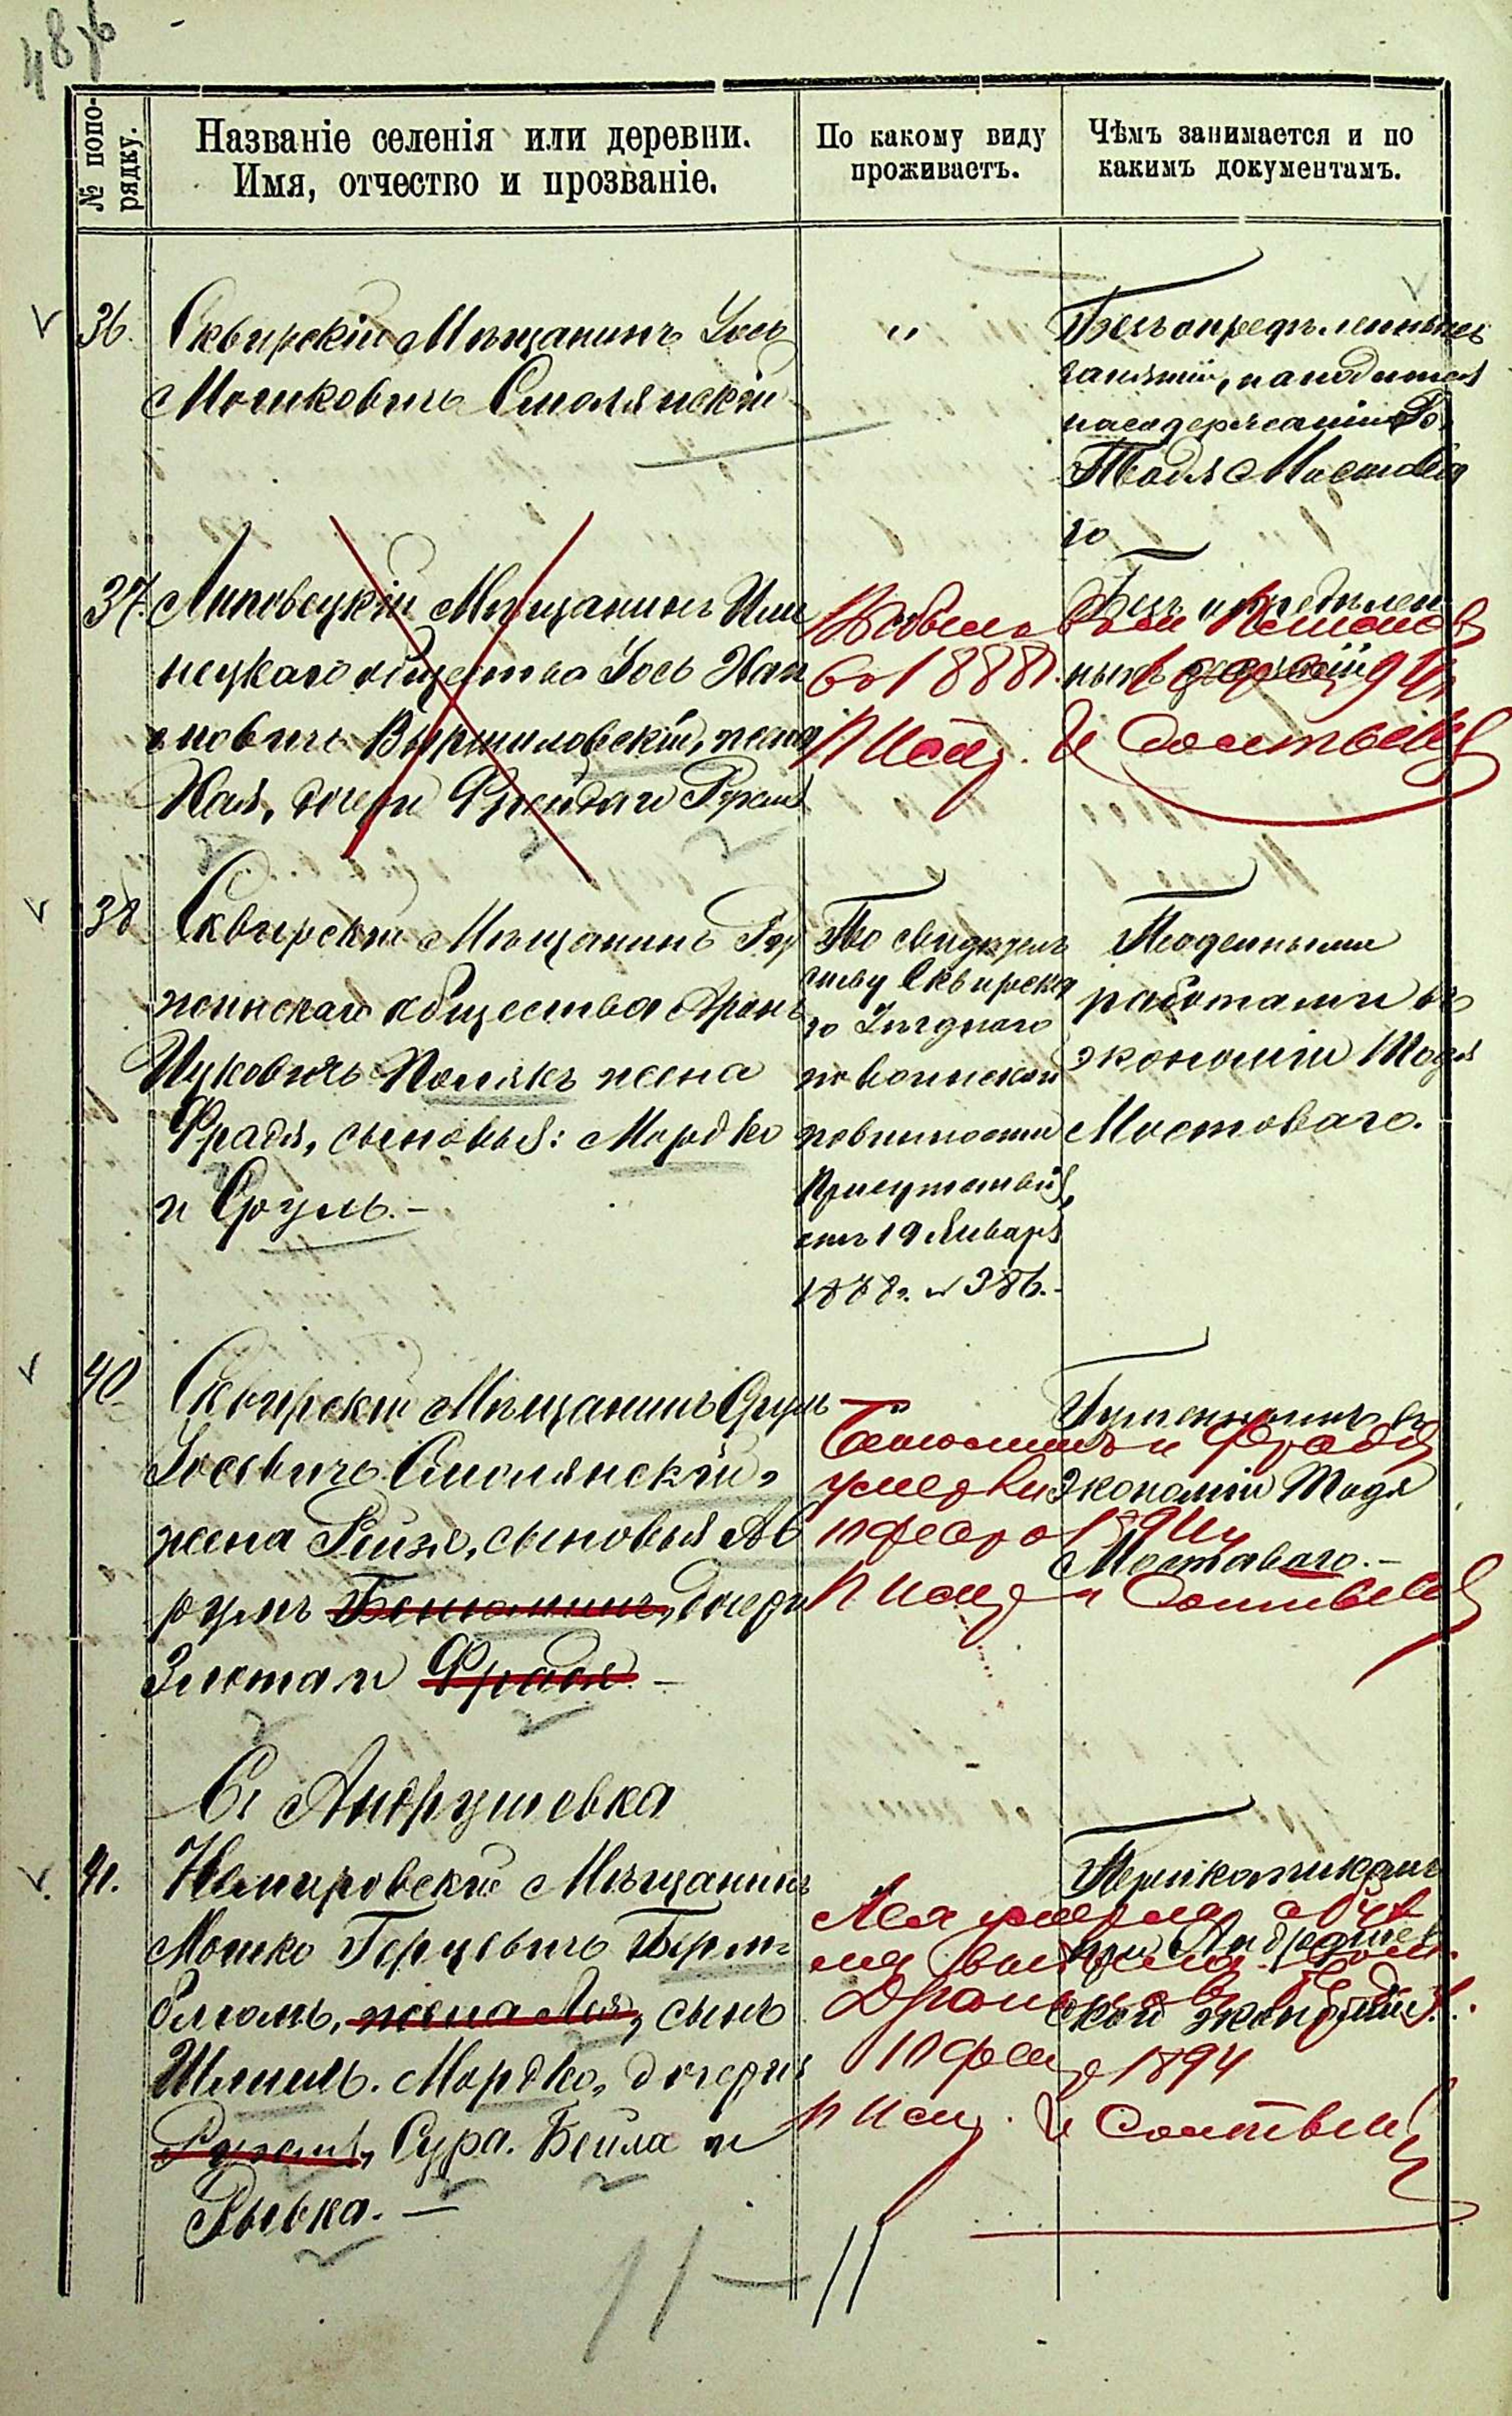 48
№ попо-
рядку.
Названіе селенія или деревни.
Имя, отчество и прозваніе.
По какому виду
проживаетъ.
Чѣмъ занимается и по
какимъ документамъ.
36.
Сквирскій Мѣщанинъ Іось
Мошковичъ Смолянскій
"
Безъ опредѣленныхъ
занятій, находится
на содержаніи
Тодя Мостова
го
37.
Липовецкій Мѣщанинъ Иль
нецкаго общества Іось Хаи
мовичъ Выршиловскій, жена
Хая, дочери Фрейда и Рухля
Выбыла
въ 1888 г.
Безъ опредѣлен
ныхъ занятій
38
Сквирскій Мѣщанинъ Ру
жинскаго общества Аронъ
Ицковичъ Полякъ жена
Фрадя, сыновья: Мордко
и Сруль. -
По свидѣтель
ству Сквирска
го Уѣзднаго
по воинской
повинности
Присутствія,
отъ 19 Января
1888 г. № 386. -
Поденными
работами въ
экономіи Тодя
Мостоваго.
40.
Сквирскій Мѣщанинъ Сруль
Іосевичъ Смолянскій,
жена Рейзя, сыновья Ав
румъ Беньоминъ, дочери
Злота и Фрадя. -
Беньоминъ и Фрадя
умерли
Гуменнымъ въ
экономіи Тодя
Моставаго. -
С. Андрушевка
41.
Немировскій Мѣщанинъ
Мошко Герцевичъ Бирн-
блюмъ, жена Лея, сынъ
Шмиль. Мордко, дочери
Рухля, Сура. Бейла и
Рывка. -
Лея умерла
1894
при Андрушев
ской экономіи.
11 -